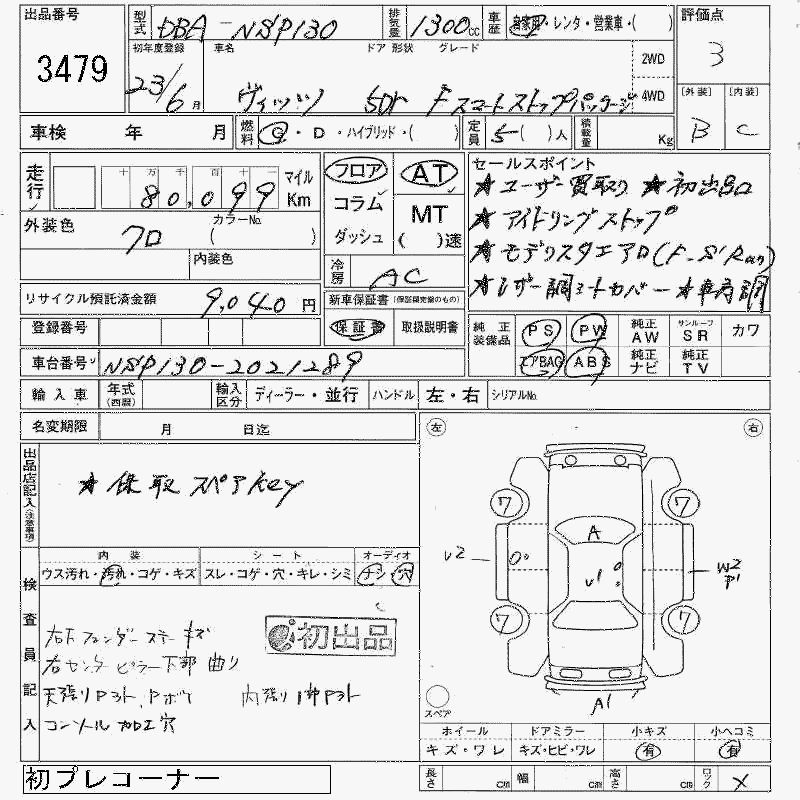 出品番号 型式 DBA－NSP130 排気量 1300cc 車歴 自家用・レンタ・営業車・( ) 評価点
3479 3
初年度登録 車名 ドア 形状 グレード 2WD
23/6月 ヴィッツ 5Dr F スマートストップパッケージ 4WD
〔外装〕 〔内装〕
B C
車検 年 月 燃料 G・D・ハイブリッド・( ) 定員 5( )人 積載量 Kg
走行 十 万 千 百 十 一 マイル
80,099 Km
フロア AT
コラム MT
ダッシュ ( )速
セールスポイント
★ユーザー買取り ★初出品
★アイドリングストップ
★モデリスタエアロ(F.S.Rear)
★レザー調シートカバー ★車高調
外装色 カラーNo.
クロ ( )
内装色
冷房 AC
リサイクル預託済金額 9,040円
新車保証書 (保証期間内のもの)
保証書 取扱説明書
登録番号
純正装備品 PS PW 純正AW サンルーフSR カワ
エアBAG ABS 純正ナビ 純正TV
車台番号 NSP130-2021289
輸入車 年式(西暦) 輸入区分 ディーラー・並行 ハンドル 左・右 シリアルNo.
名変期限 月 日迄
左 右
出品店記入(注意事項)
★保取スペアKey
内装 シート オーディオ
ウス汚れ・汚れ・コゲ・キズ スレ・コゲ・穴・キレ・シミ ナシ・穴
検査員記入
初出品
右Fフェンダーステーキズ
右センターピラー下部曲り
天張りPヨト、Pボウ 内張り1部Pヨト
コンソール加工穴
7 7
A
U2 W2
P1
U1
7 7
A1
スペア
ホイール ドアミラー 小キズ 小ヘコミ
キズ・ワレ キズ・ヒビ・ワレ 有 有
初プレコーナー
長さ cm 幅 cm 高さ cm ロック X